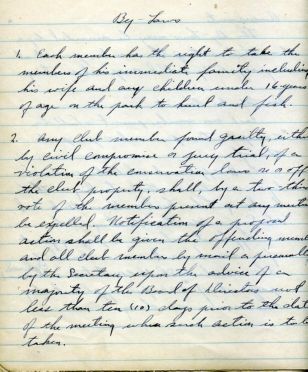 By Laws
1. Each member has the right to take the
members of his immediate family including
his wife and any children under 16 years
of age on the park to hunt and fish.
2. Any club member found guilty, either
by civil compromise or jury trial, of a
violation of the conservation laws on or off
the club property, shall, by a two thi
vote of the members present at any meeting
be expelled. Notification of a proposed
action shall be given the offending mem
and all club members by mail or personally
by the Secretary upon the advice of a
majority of the Board of Directors not
less than ten (10) days prior to the date
of the meeting when such action is to be
taken.